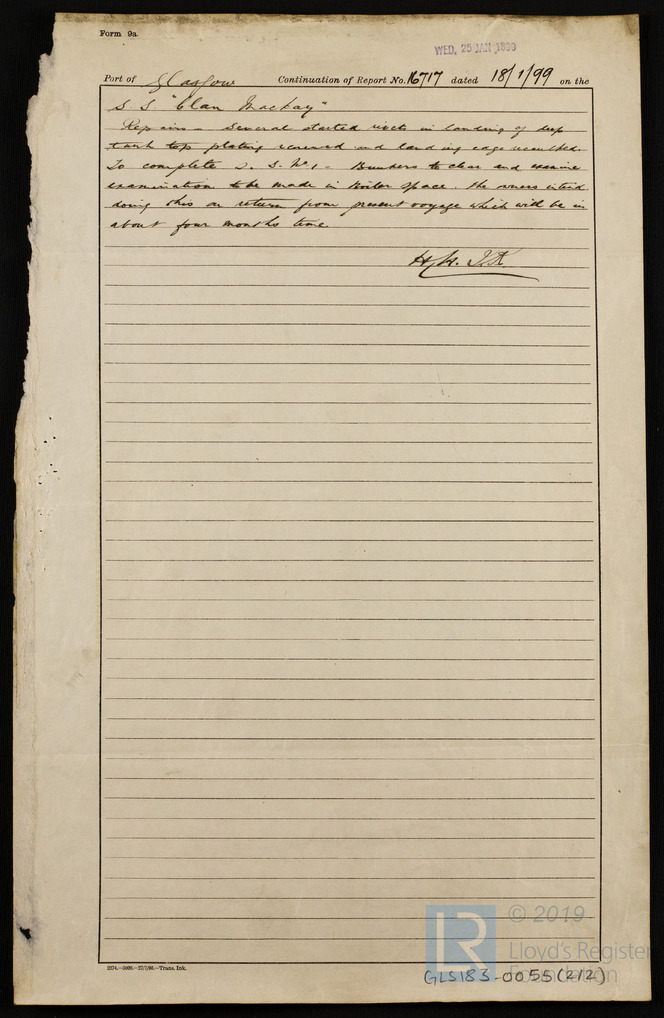 Form 9a.
WED. 25 JAN 1899
Port of Glasgow Continuation of Report No. 16717 dated 18/1/99 on the
S.S "Clan Mackay"
Repairs - Several started rivets in landing of deep
tank top plating renewed and landing edge recaulked.
To complete S. S. No 1 - Bunkers to clear and examine
examination to be made in boiler space. The owners intend
doing this on return from present voyage which will be in
about four months time.
2174.-5000.-27/7/98.-Trans. Ink.
LR © 2019
Lloyd's Register
Foundation
GLS183-0055(2/2)